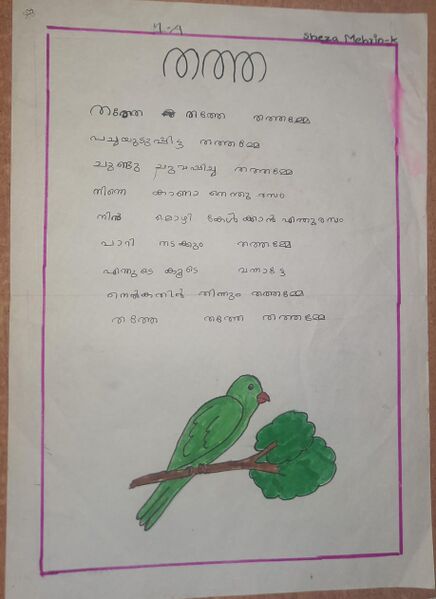 1-A
Sheza Mehrin-K
തത്ത
തത്തേ തത്തേ തത്തമ്മേ
പച്ചയുടുപ്പിട്ട തത്തമ്മേ
ചുണ്ടു ചുവപ്പിച്ച തത്തമ്മേ
നിന്നെ കാണാ നെന്തു രസം
നിൻ മൊഴി കേൾക്കാൻ എന്തുരസം
പാറി നടക്കും തത്തമ്മേ
എന്നുടെ കൂടെ വന്നാട്ടേ
നെൽകതിർ തിന്നും തത്തമ്മേ
തത്തേ തത്തേ തത്തമ്മേ